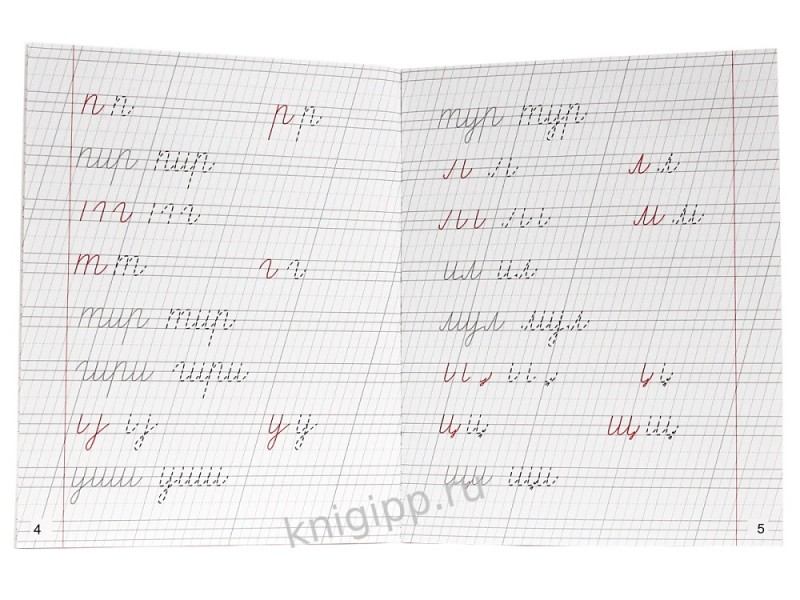 п п р р
пир пир
т т г г
тир тир
гири гири
у у
уши уши
4
тур тур
л л
м м
ил ил
мул мул
ц ц щ щ
5
knigipp.ru